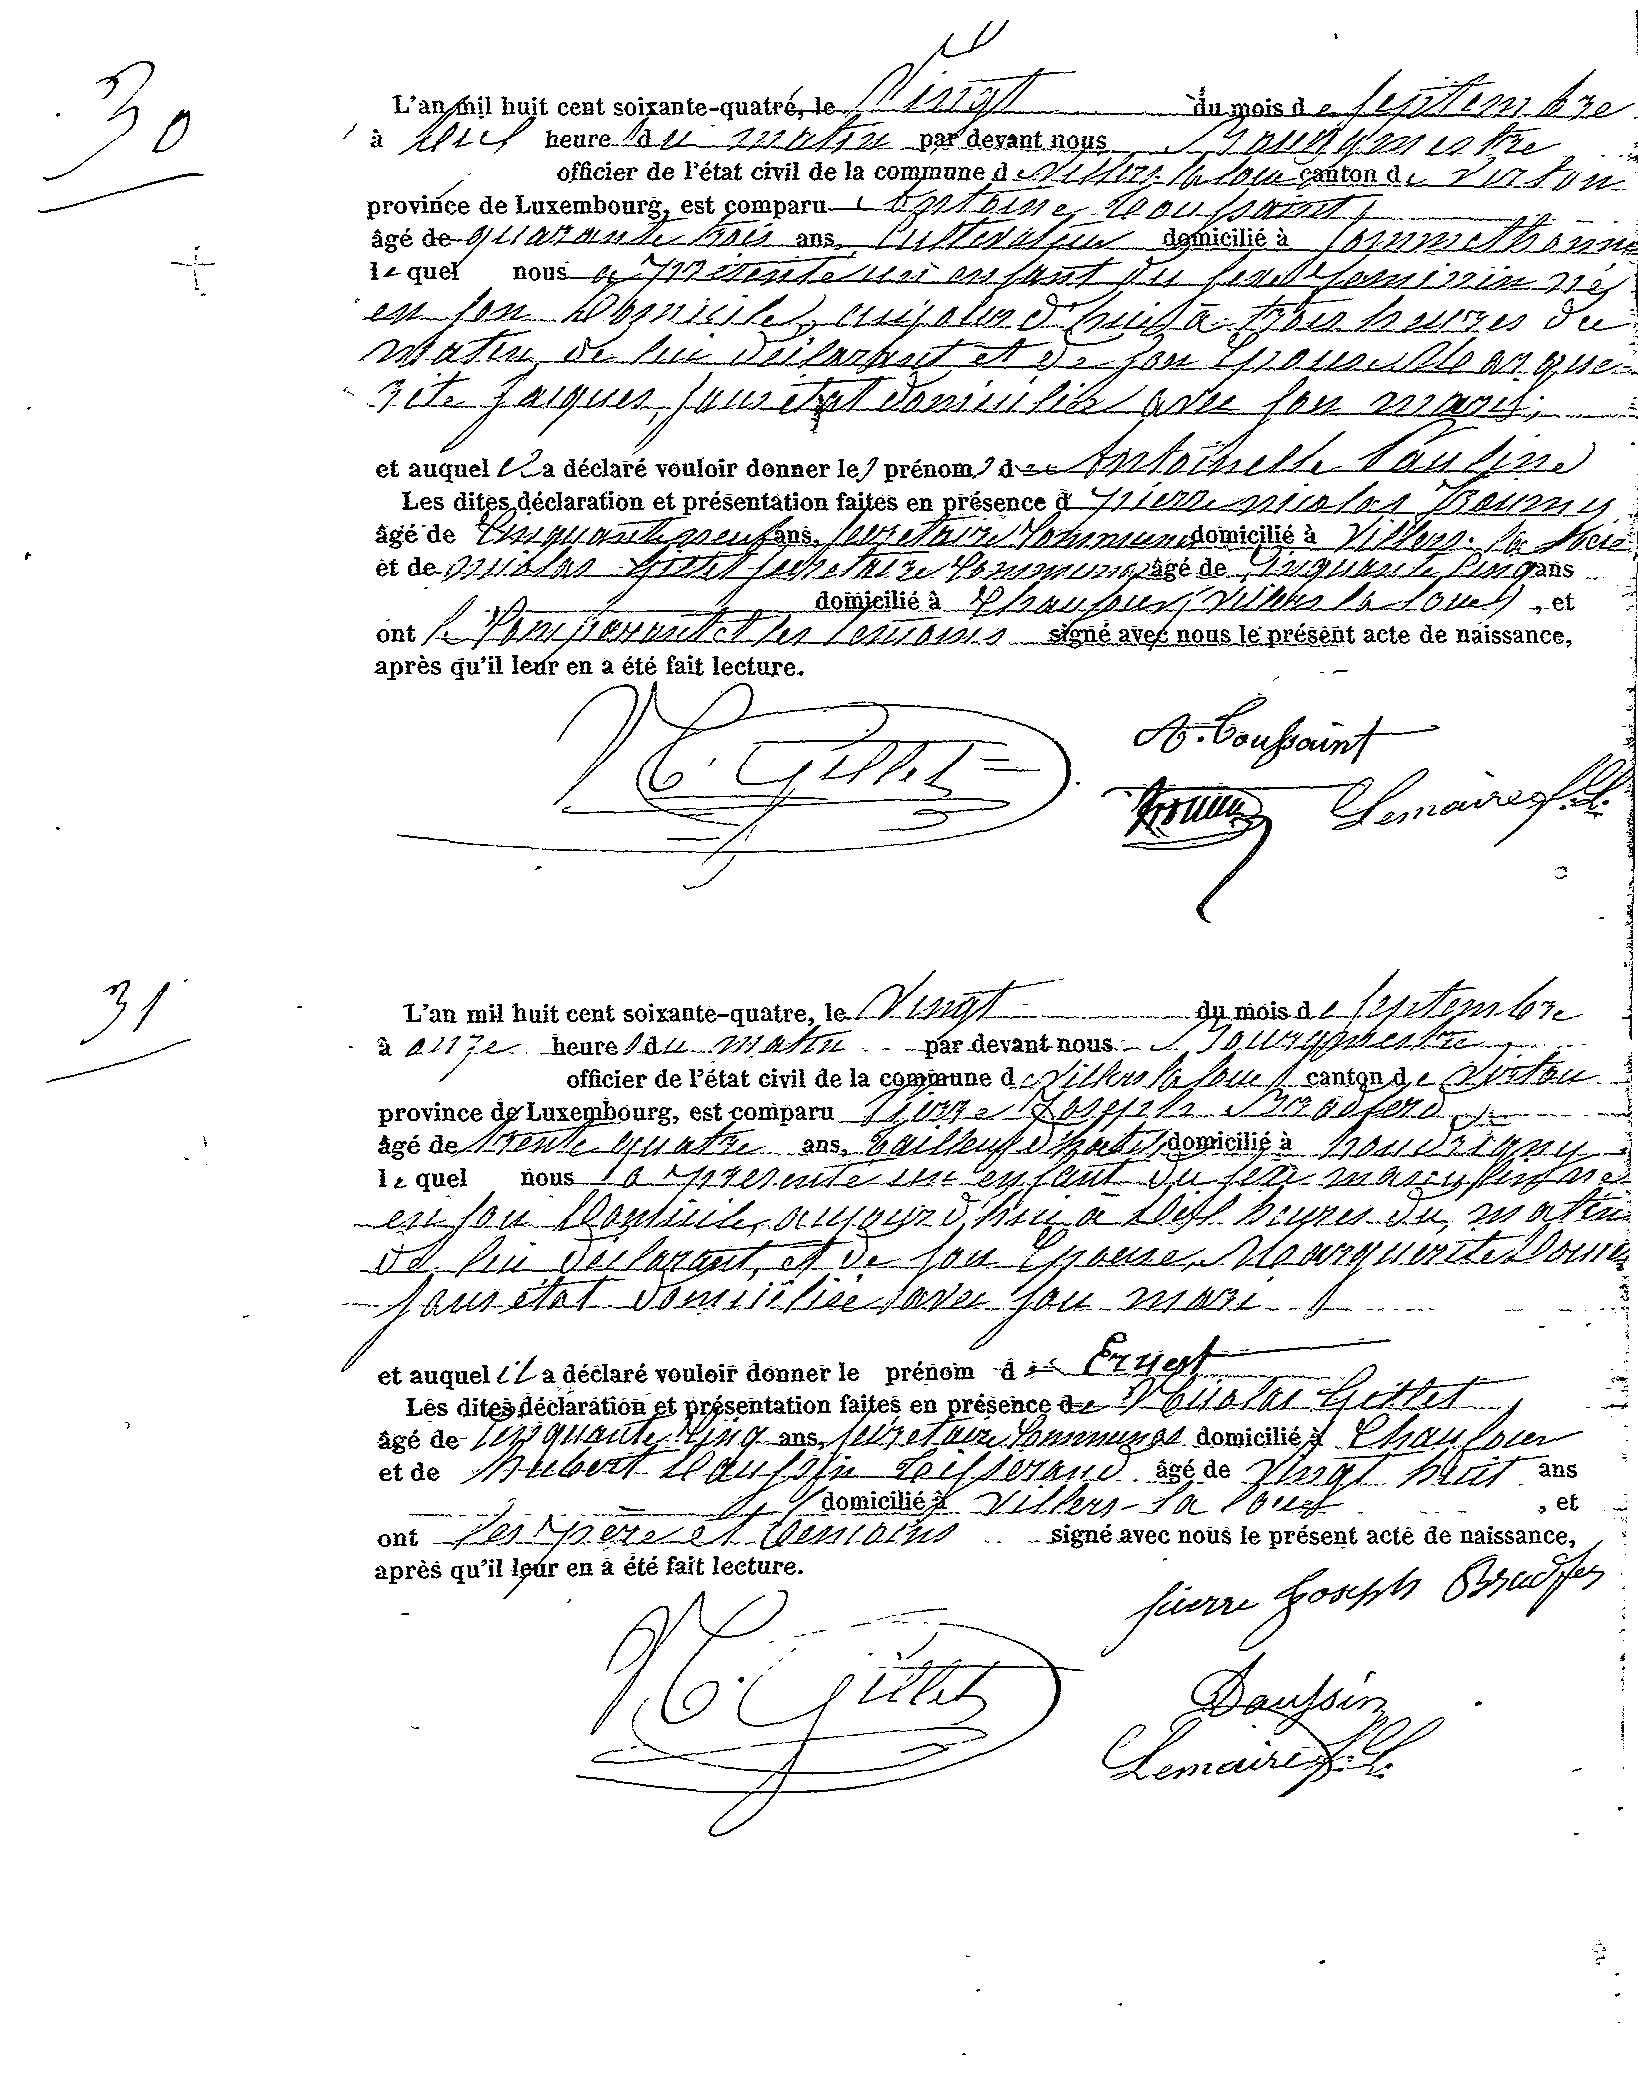 30
L'an mil huit cent soixante-quatre, le Vingt du mois de septembre
à heures du matin par devant nous Bourgmestre
officier de l'état civil de la commune de Villers la loue canton de Virton
province de Luxembourg, est comparu Antoine Toussaint,
âgé de quarante trois ans, Cultivateur domicilié à Sommethonne
lequel nous a présenté un enfant du sexe feminin né
en son Domicile, aujourd'hui à trois heures du
matin de lui déclarant et de son Epouse Margue-
rite Jacques, sans état domiciliée avec son mari,
et auquel il a déclaré vouloir donner les prénoms de Antoinette Pauline
Les dites déclaration et présentation faites en présence d pierre nicolas
âgé de Cinquante neuf ans, secretaire Communal domicilié à Villers la loue
et de nicolas Gillet secretaire Communal âgé de Cinquante Cinq ans
domicilié à Chaufour, Villers la loue, et
ont le Comparant et les temoins signé avec nous le présent acte de naissance,
après qu'il leur en a été fait lecture.
N. Gillet A. Toussaint
Lemaire
31
L'an mil huit cent soixante-quatre, le Vingt du mois de septembre
à onze heures du matin par devant nous Bourgmestre
officier de l'état civil de la commune de Villers la loue canton de Virton
province de Luxembourg, est comparu Pierre Joseph
âgé de trente quatre ans, tailleur d'habits domicilié à houdrigny
lequel nous a présenté un enfant du sexe masculin né
en son Domicile, aujourd'hui à heures du matin
de lui déclarant, et de son Epouse, Marguerite
sans état domiciliée avec son mari
et auquel il a déclaré vouloir donner le prénom de Ernest
Les dites déclaration et présentation faites en présence de Nicolas Gillet
âgé de Cinquante Cinq ans, secretaire Communal domicilié à Chaufour
et de hubert Daussin tisserand âgé de vingt huit ans
domicilié à Villers-la loue, et
ont les père et temoins signé avec nous le présent acte de naissance,
après qu'il leur en a été fait lecture.
pierre Joseph
N. Gillet
Daussin
Lemaire